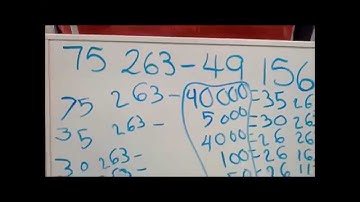 75 263-49 156
75 263-40000=35 26
35 263-5000=30 26
30 263-4000=26 26
100=26 16